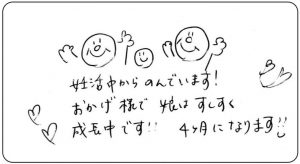 妊活中からのんでいます!
おかげ様で 娘は すくすく
成長中です!! 4ヶ月になります!!